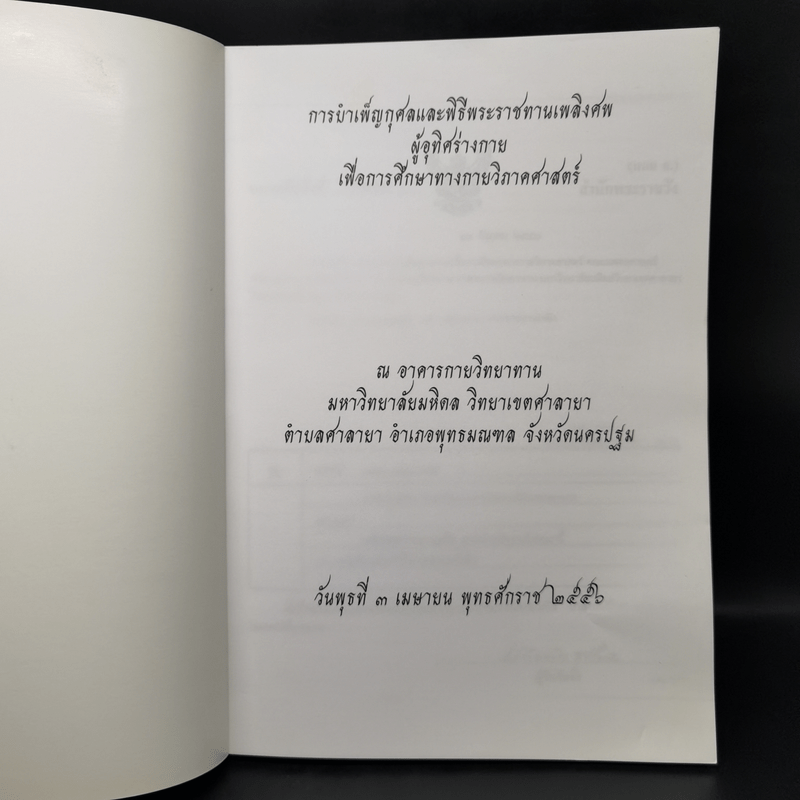 การบำเพ็ญกุศลและพิธีพระราชทานเพลิงศพ
ผู้อุทิศร่างกาย
เพื่อการศึกษาทางกายวิภาคศาสตร์
ณ อาคารกายวิทยาทาน
มหาวิทยาลัยมหิดล วิทยาเขตศาลายา
ตำบลศาลายา อำเภอพุทธมณฑล จังหวัดนครปฐม
วันพุธที่ ๓ เมษายน พุทธศักราช ๒๕๕๖